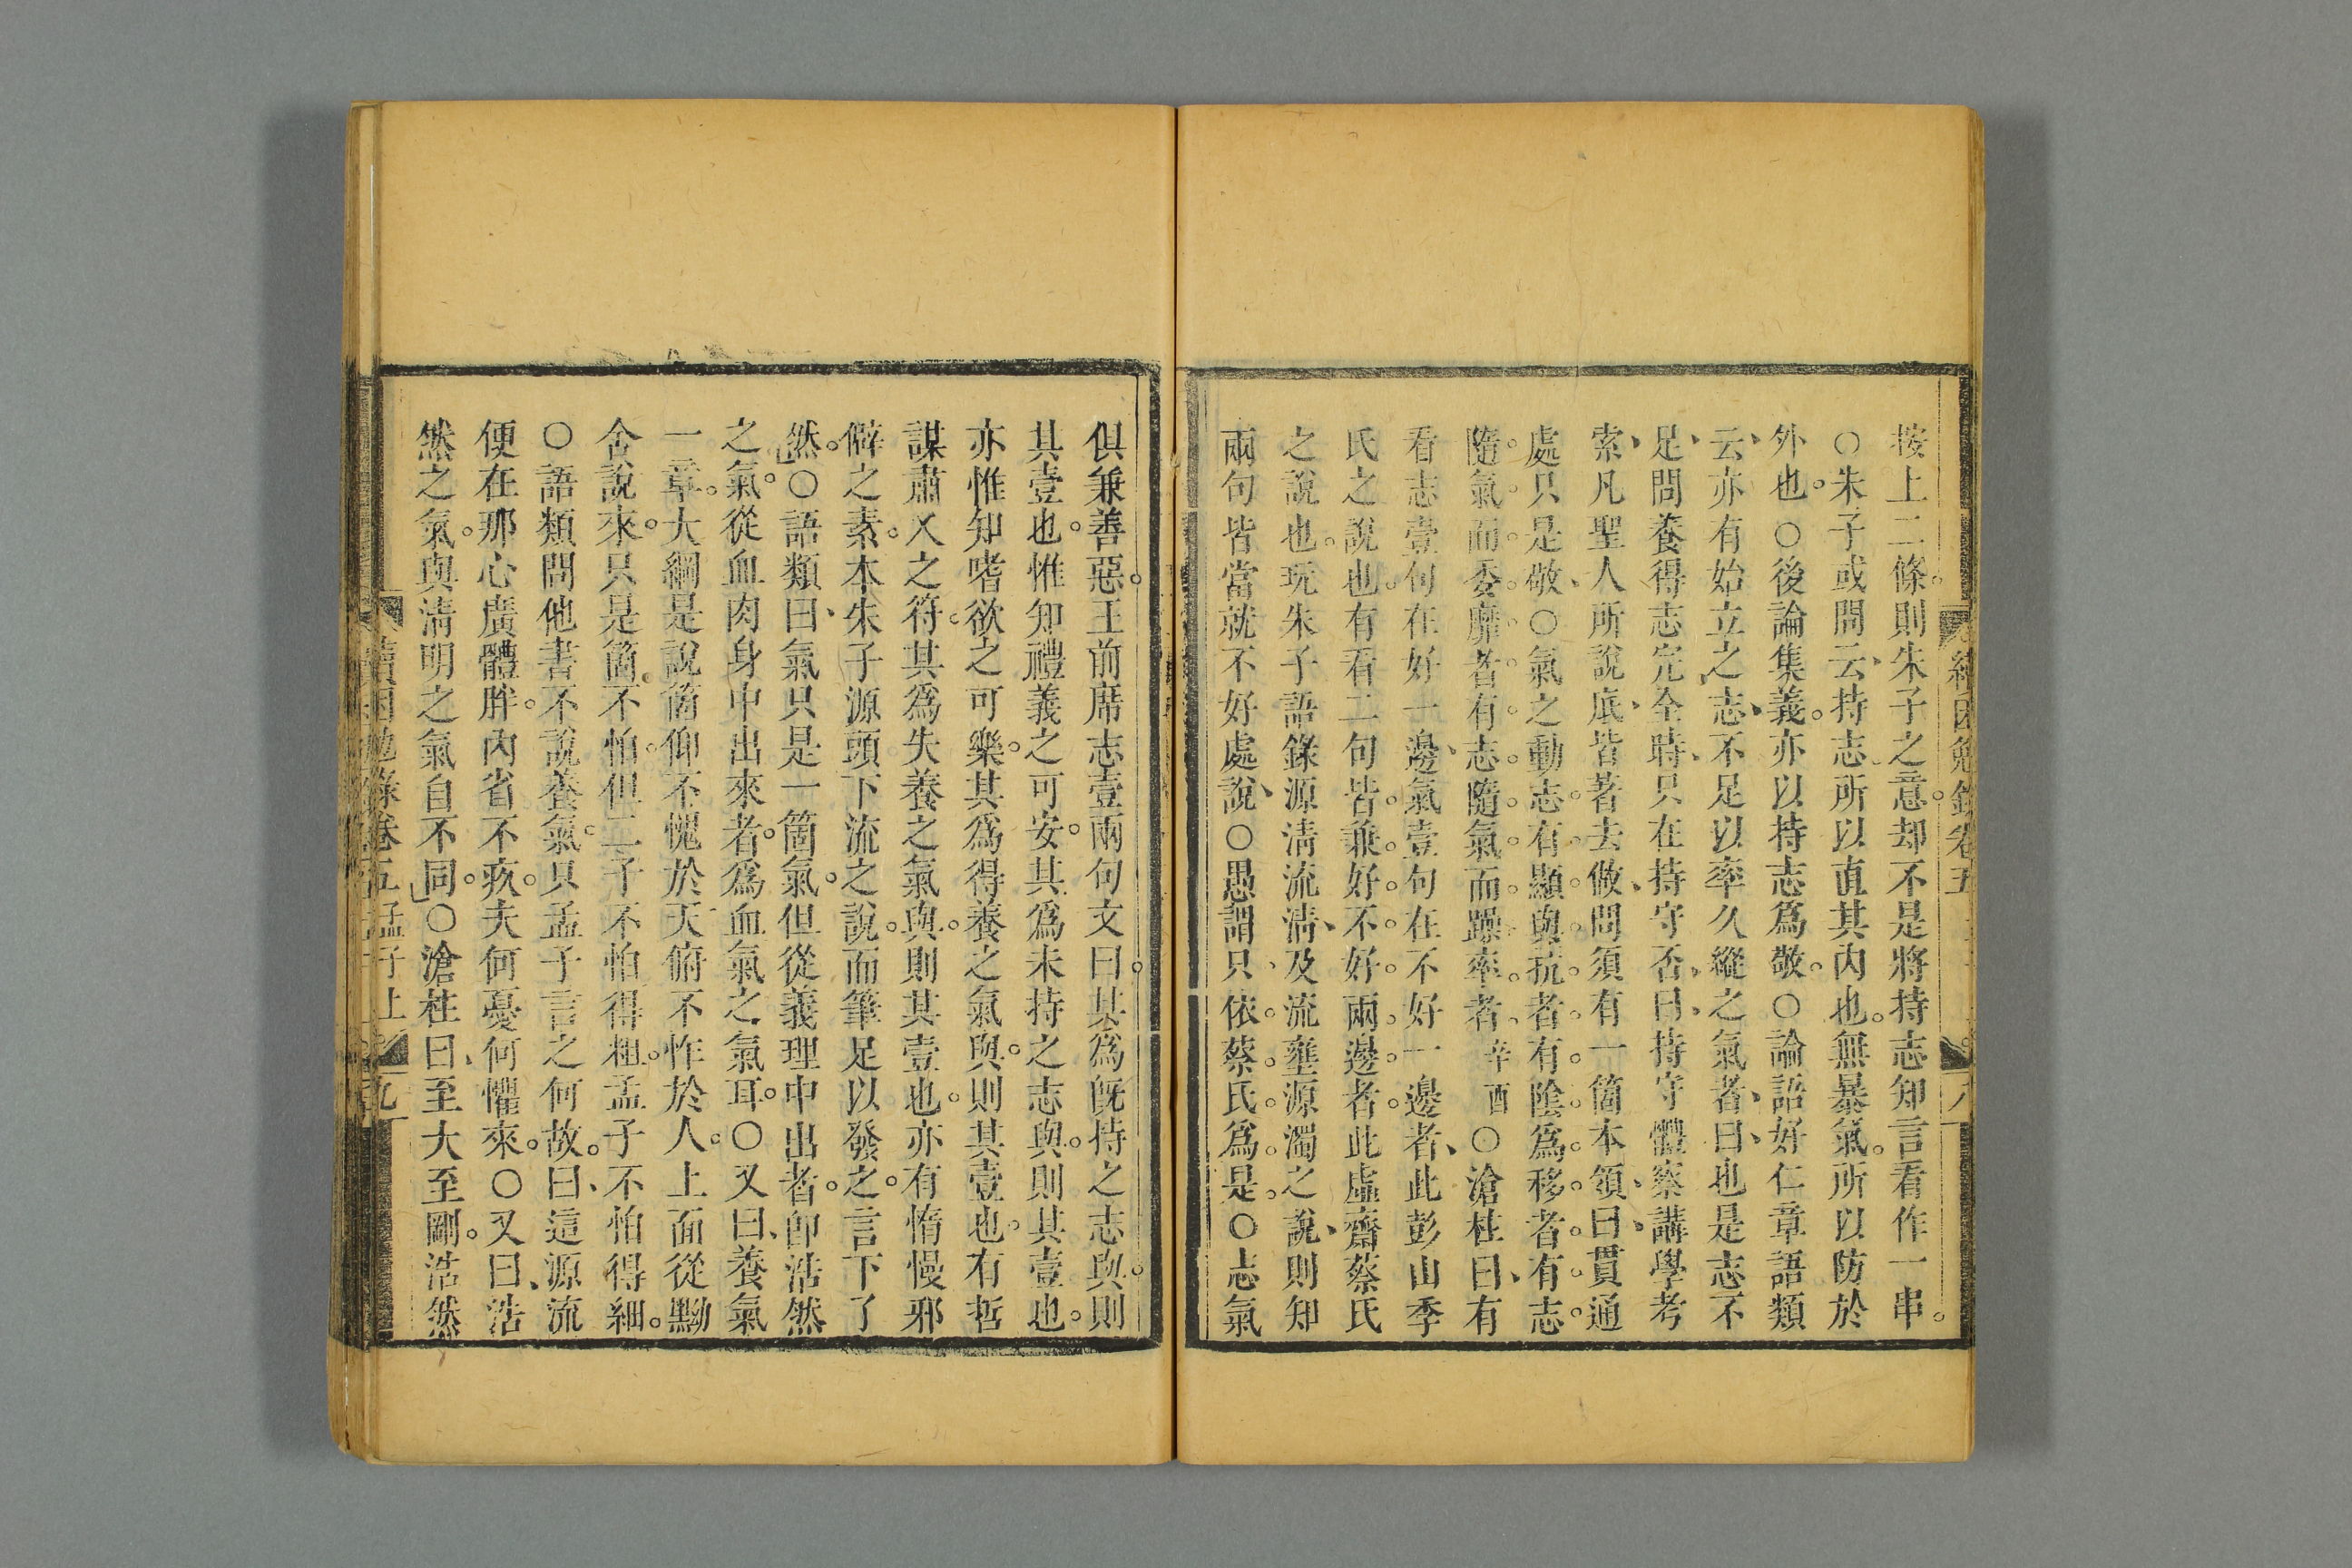 按上二條則朱子之意却不是將持志知言看作一串
○朱子或問云持志所以直其內也無暴氣所以防於
外也○後論集義亦以持志為敬○論語好仁章語類
云亦有始立之志不足以率久縱之氣者曰也是志不
足問養得志完全時只在持守否曰持守體察講學考
索凡聖人所說底皆著去做問須有一箇本領曰貫通
處只是敬○氣之動志有顯與抗者有陰為移者有志
隨氣而委靡者有志隨氣而躁率者辛酉○滄柱曰有
看志壹句在好一邊氣壹句在不好一邊者此彭山季
氏之說也有看二句皆兼好不好兩邊者此虛齋蔡氏
之說也玩朱子語錄源清流清及流壅源濁之說則知
兩句皆當就不好處說○愚謂只依蔡氏為是○志氣
續困勉錄卷五
八
俱兼善惡王前席志壹兩句文曰其為既持之志與則
其壹也惟知禮義之可安其為未持之志與則其壹也
亦惟知嗜欲之可樂其為得養之氣與則其壹也有哲
謀肅乂之符其為失養之氣與則其壹也亦有惰慢邪
僻之素本朱子源頭下流之說而筆足以發之言下了
然○語類曰氣只是一箇氣但從義理中出者即浩然
之氣從血肉身中出來者為血氣之氣耳○又曰養氣
一章大綱是說箇仰不愧於天俯不怍於人上面從黝
舍說來只是箇不怕但二子不怕得粗孟子不怕得細
○語類問他書不說養氣只孟子言之何故曰這源流
便在那心廣體胖內省不疚夫何憂何懼來○又曰浩
然之氣與清明之氣自不同○滄柱曰至大至剛浩然
續困勉錄卷五 孟子上
九